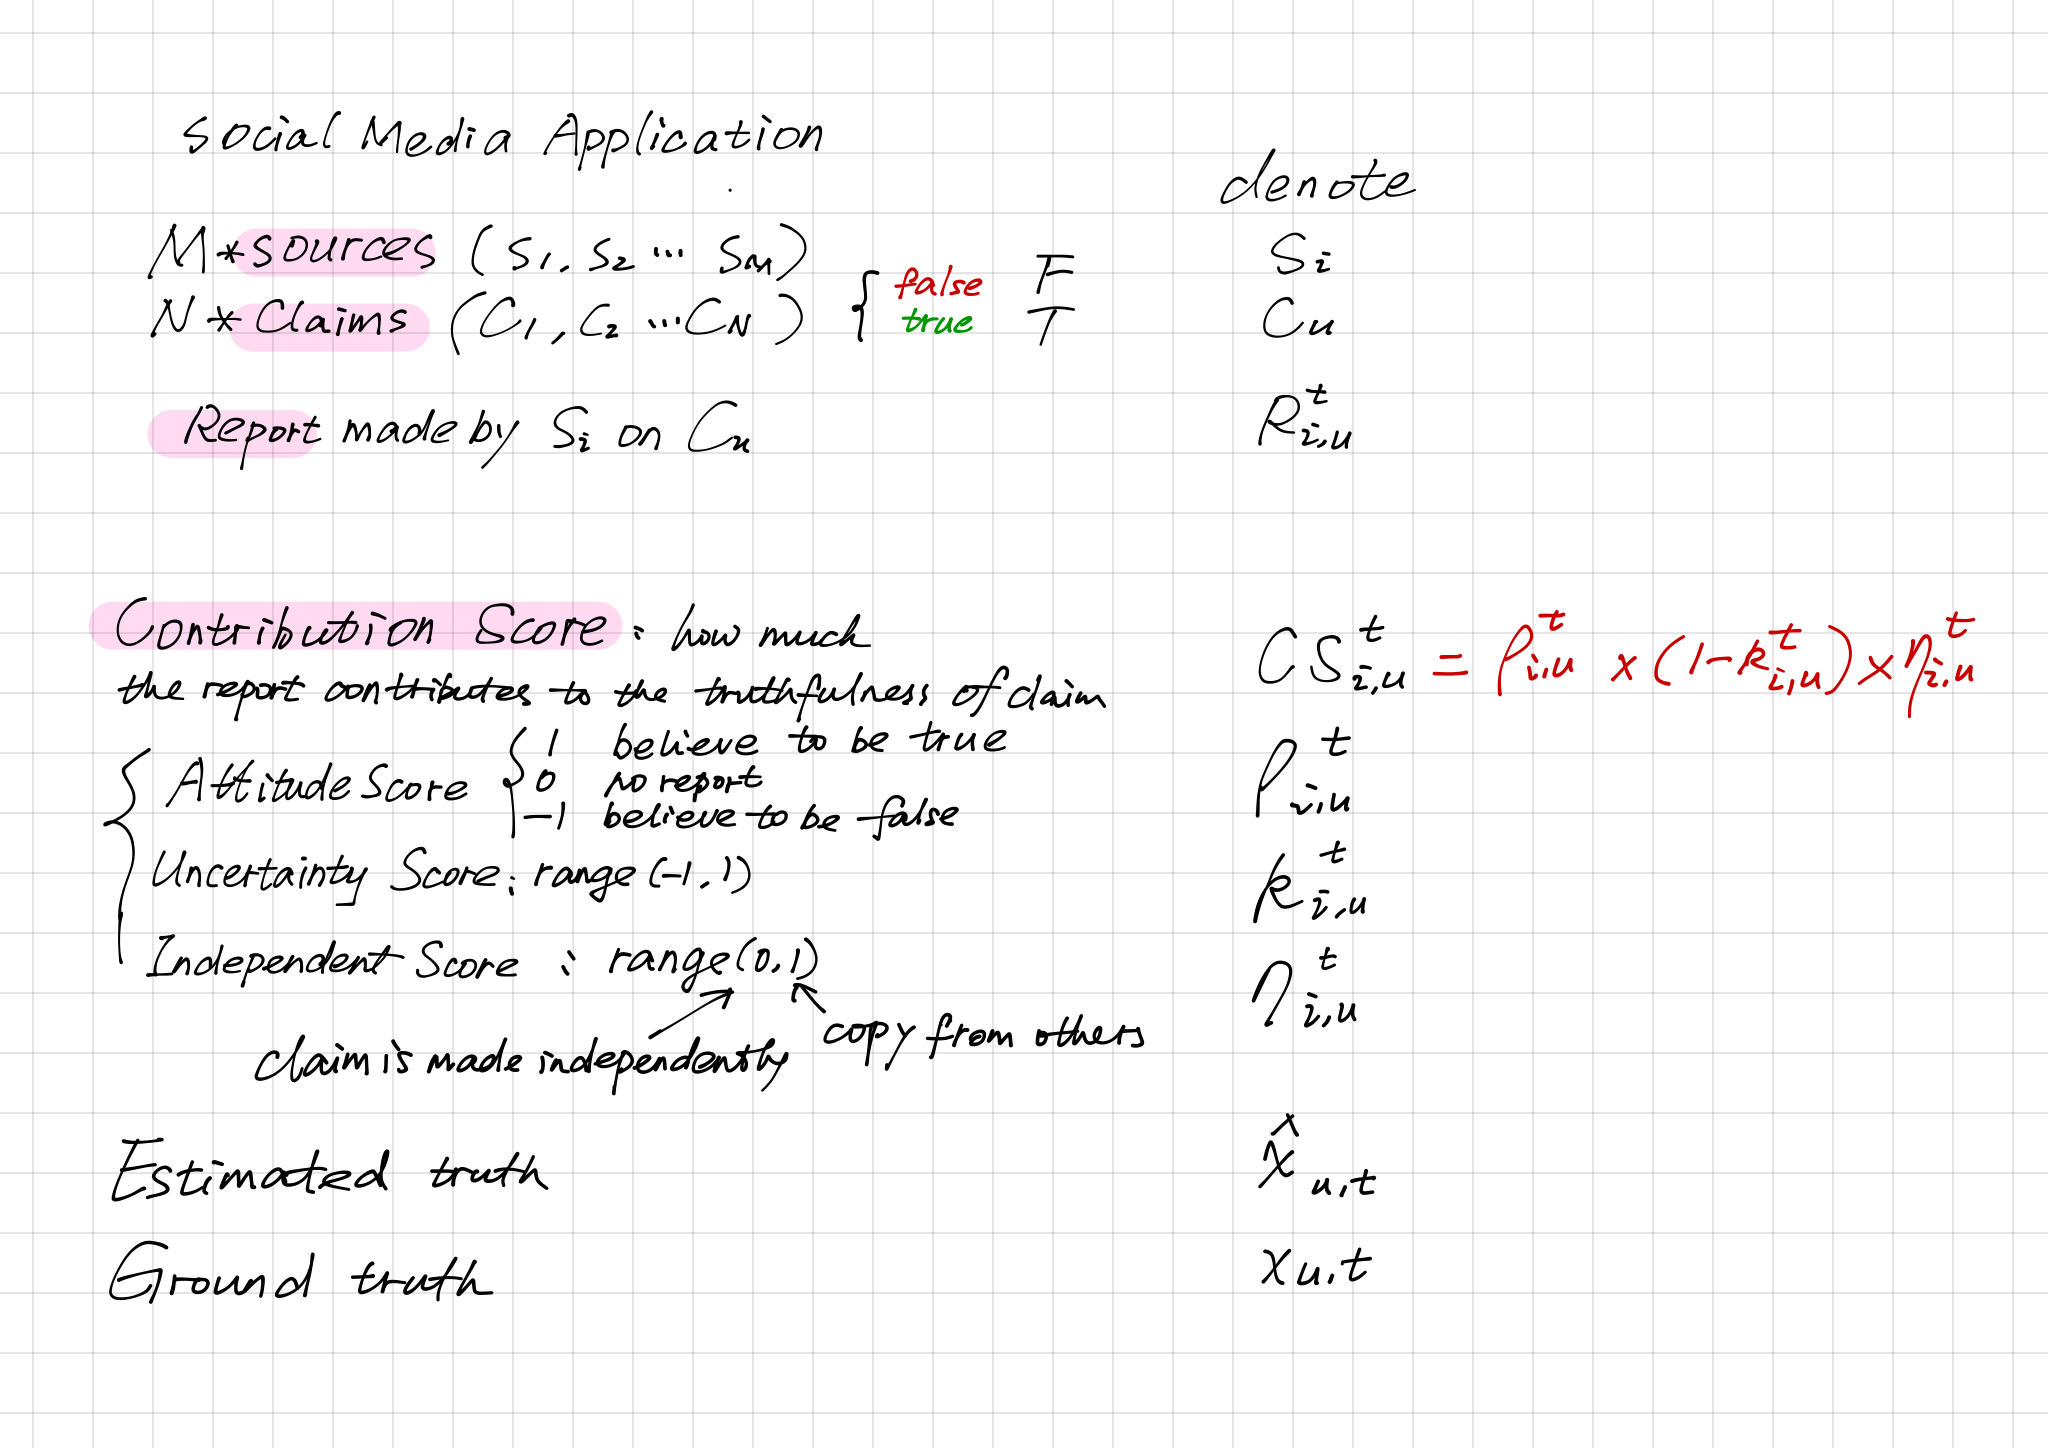 Social Media Application
denote
M*sources (S1, S2 ... SM) Si
N*Claims (C1, C2 ... CN) { false F
true T Cu
Report made by Si on Cu R^t_i,u
Contribution Score : how much CS^t_i,u = ρ^t_i,u × (1-k^t_i,u) × η^t_i,u
the report contributes to the truthfulness of claim
Attitude Score { 1 believe to be true ρ^t_i,u
0 no report
-1 believe to be false
Uncertainty Score : range (-1, 1) k^t_i,u
Independent Score : range (0, 1) η^t_i,u
claim is made independently copy from others
Estimated truth x̂u,t
Ground truth xu,t